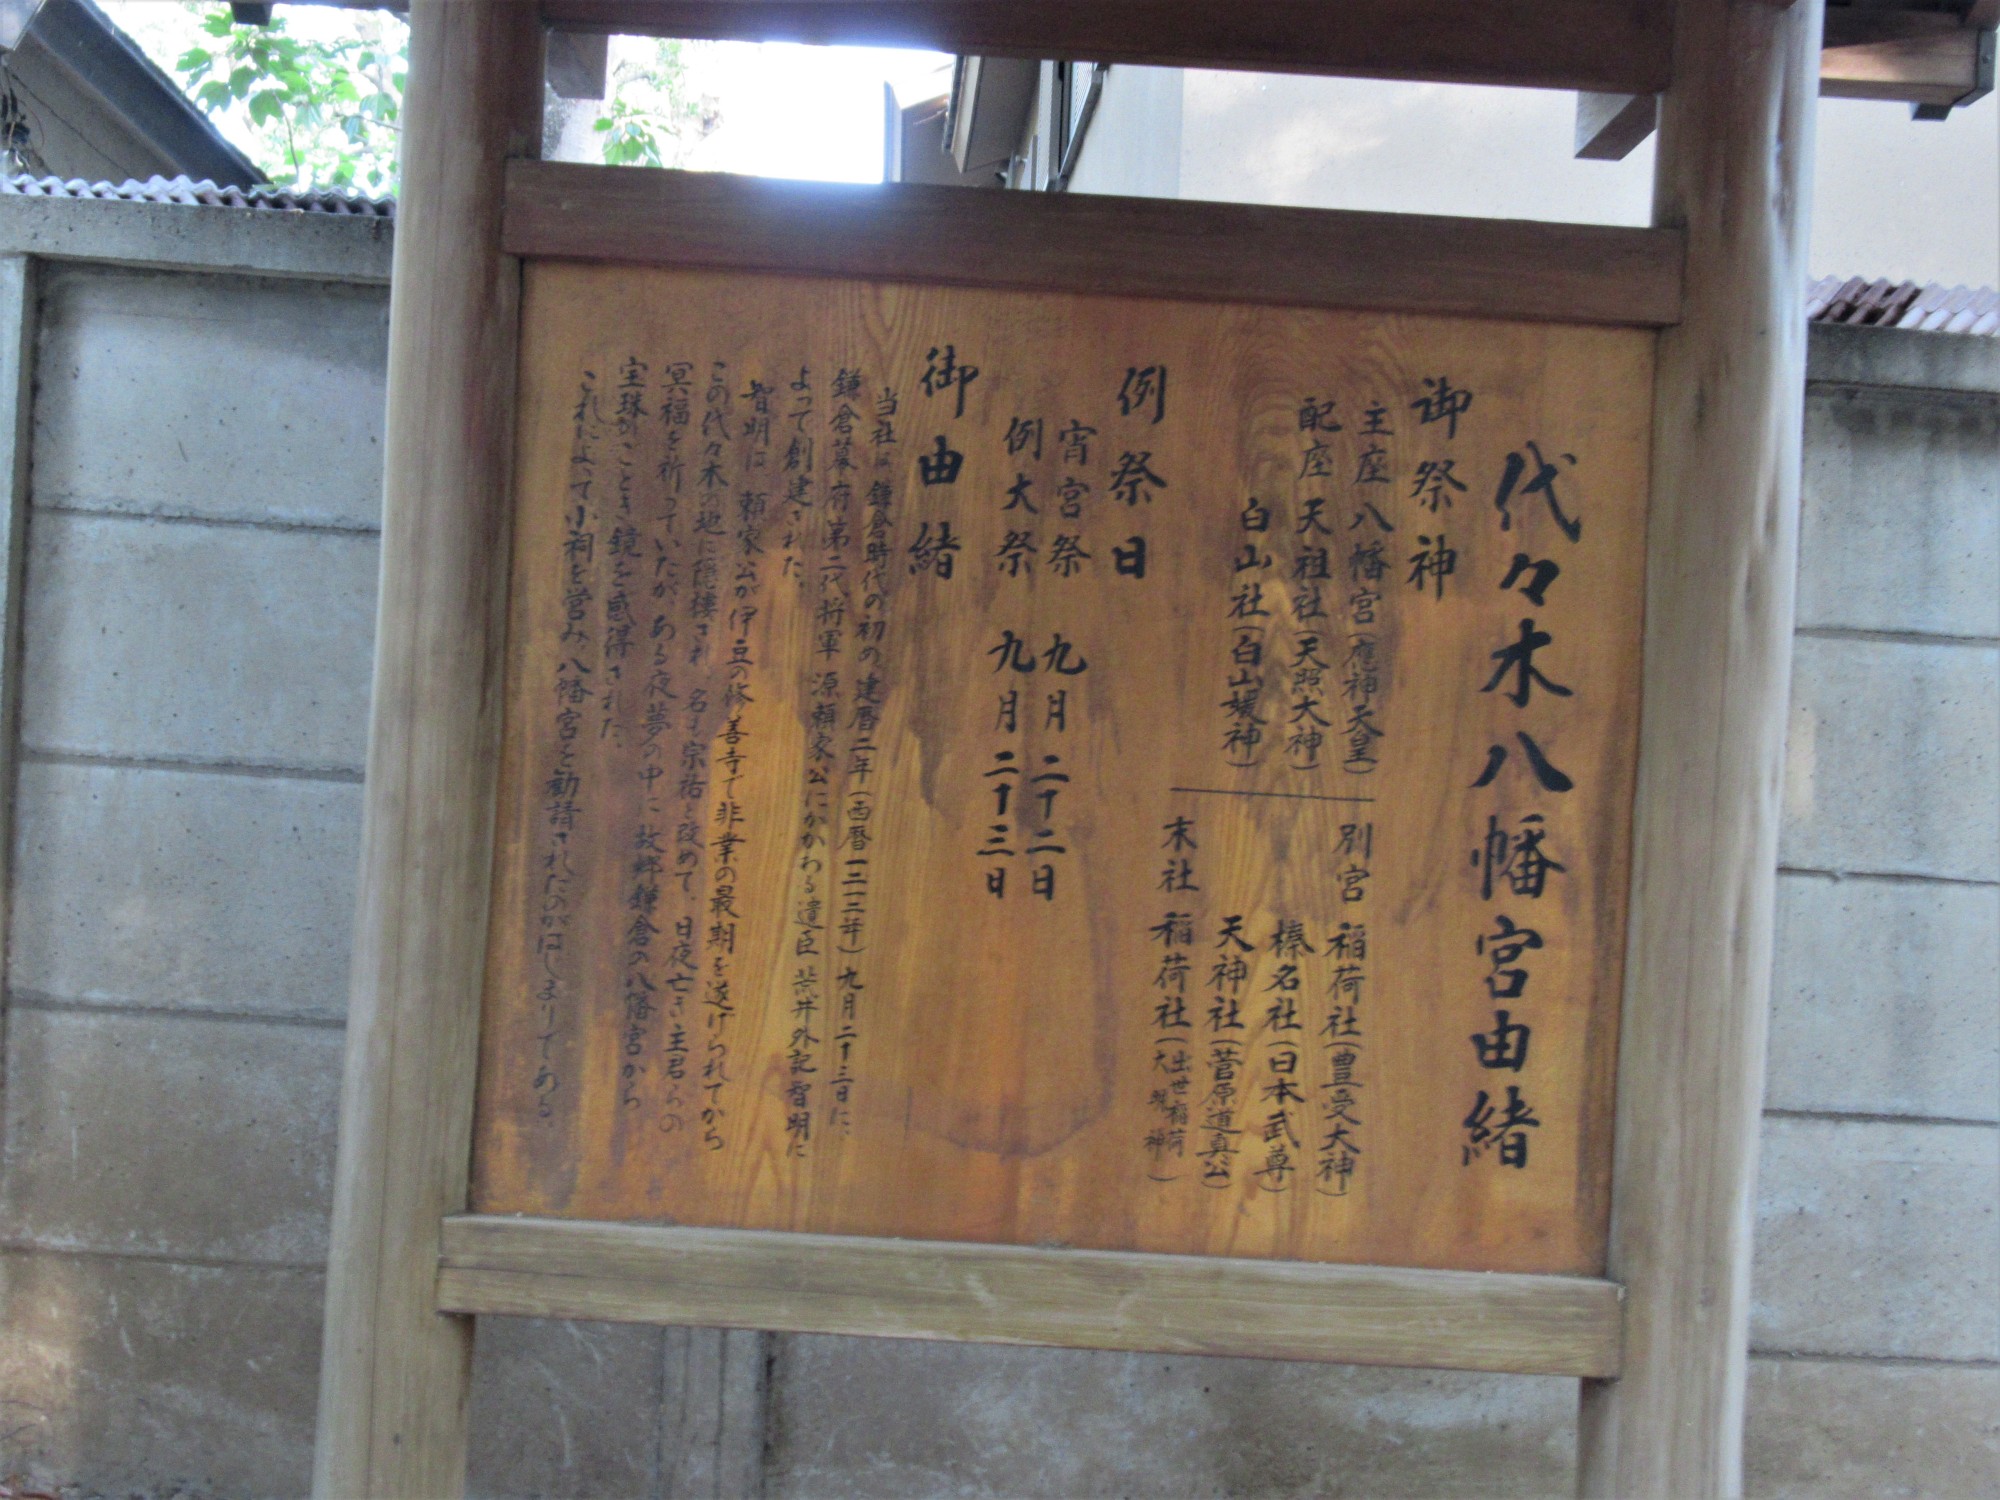 代々木八幡宮由緒
御祭神
主座 八幡宮(應神天皇)
配座 天祖社(天照大神)
白山社(白山媛神)
別宮 稲荷社(豊受大神)
榛名社(日本武尊)
天神社(菅原道真公)
末社 稲荷社(出世稲荷大明神)
例祭日
宵宮祭 九月二十二日
例大祭 九月二十三日
御由緒
当社は鎌倉時代の初め、建暦二年(西暦一二一二年)九月二十三日に、
鎌倉幕府第二代将軍 源頼家公にかかわる遺臣 荒井外記智明に
よって創建された。
智明は、頼家公が伊豆の修善寺で非業の最期を遂げられてから
この代々木の地に隠棲され、名も宗祐と改めて、日夜亡き主君らの
冥福を祈っていたが、ある夜夢の中に故郷鎌倉の八幡宮から
宝珠がごとき鏡を感得された。
これによって小祠を営み、八幡宮を勧請されたのがはじまりである。